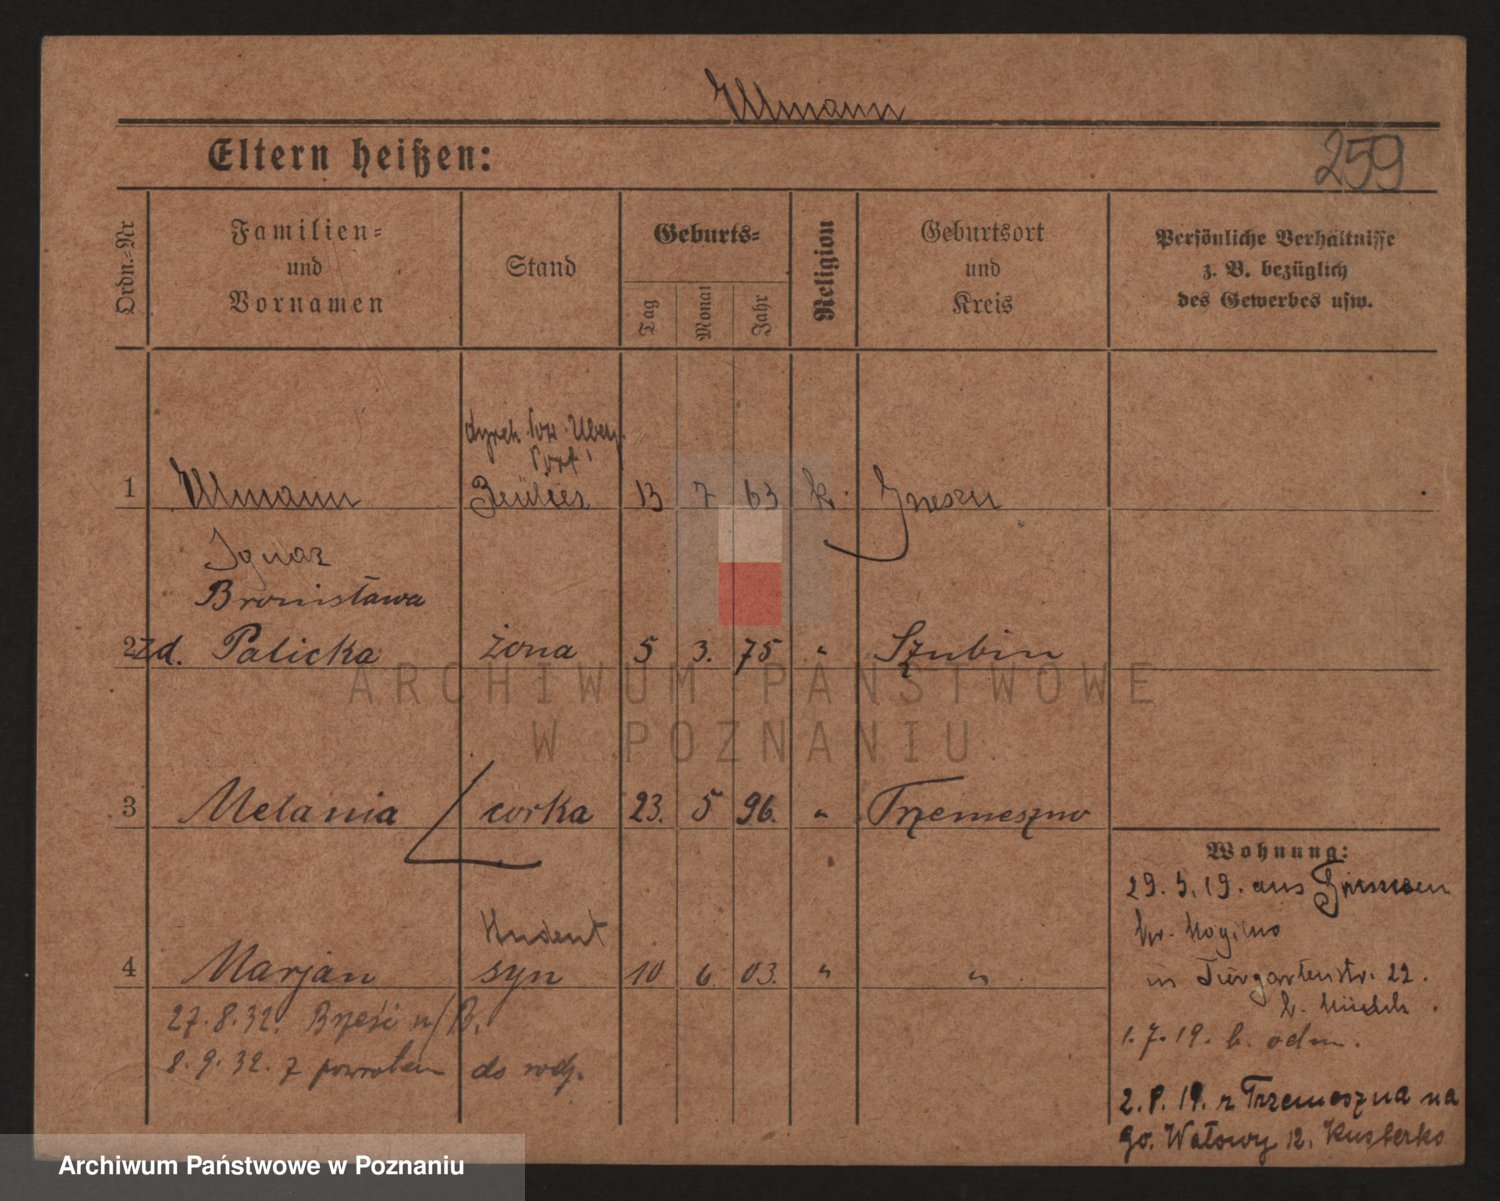 Ullmann
Eltern heißen:
259
Ordn.-Nr
Familien-
und
Vornamen
Stand
Geburts-
Tag
Monat
Jahr
Religion
Geburtsort
und
Kreis
Persönliche Verhältnisse
z. B. bezüglich
des Gewerbes usw.
1 Ullmann 13 7 63 k. Gnesen
Ignaz
Bronisława
2 zd. Palicka żona 5 3. 75 " Szubin
3 Melania córka 23. 5 96. " Trzemeszno
Student
4 Marjan syn 10 6 03. " "
27.8.32. Brześć n/B.
8.9.32. z powrotem do rodz.
Wohnung:
29.5.19. aus
Kr. Mogilno
in Tiergartenstr. 22.
1.7.19. b. odm.
2.8.19. z Trzemeszna na
Wałowy 12.
ARCHIWUM PAŃSTWOWE
W POZNANIU
Archiwum Państwowe w Poznaniu